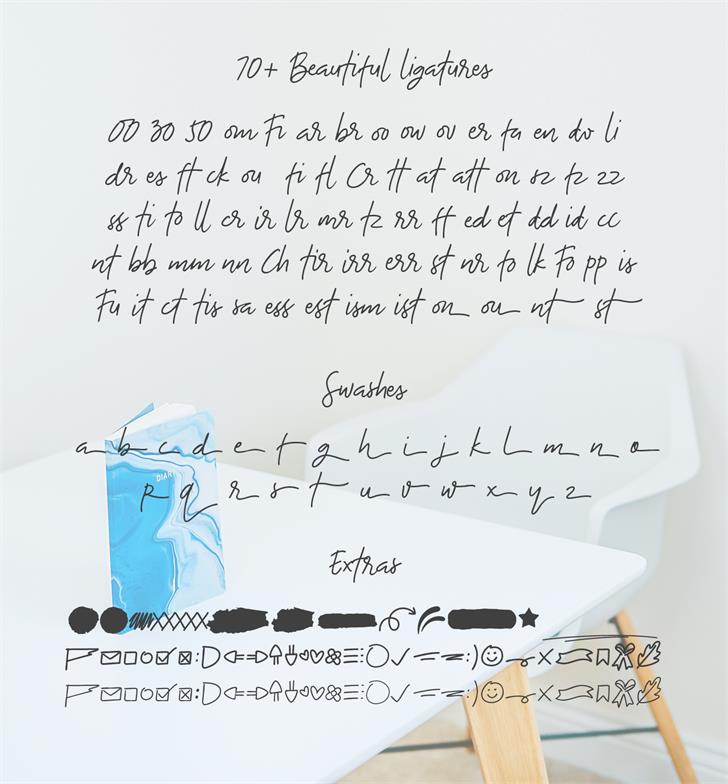 70+ Beautiful ligatures
00 30 50 om Fi ar br oo ow ov er fa en do li
dr es ft ck ou fi fl Cr tt at att on sz tz zz
ss ti to ll cr ir lr mr tz rr ff ed et dd id cc
nt bb mm nn Ch tir irr err st nr fo lk Fo pp is
Fu it ct tis sa ess est ism ist on ou nt st
Swashes
a b c d e f g h i j k l m n o
p q r s t u v w x y z
DIARY
Extras